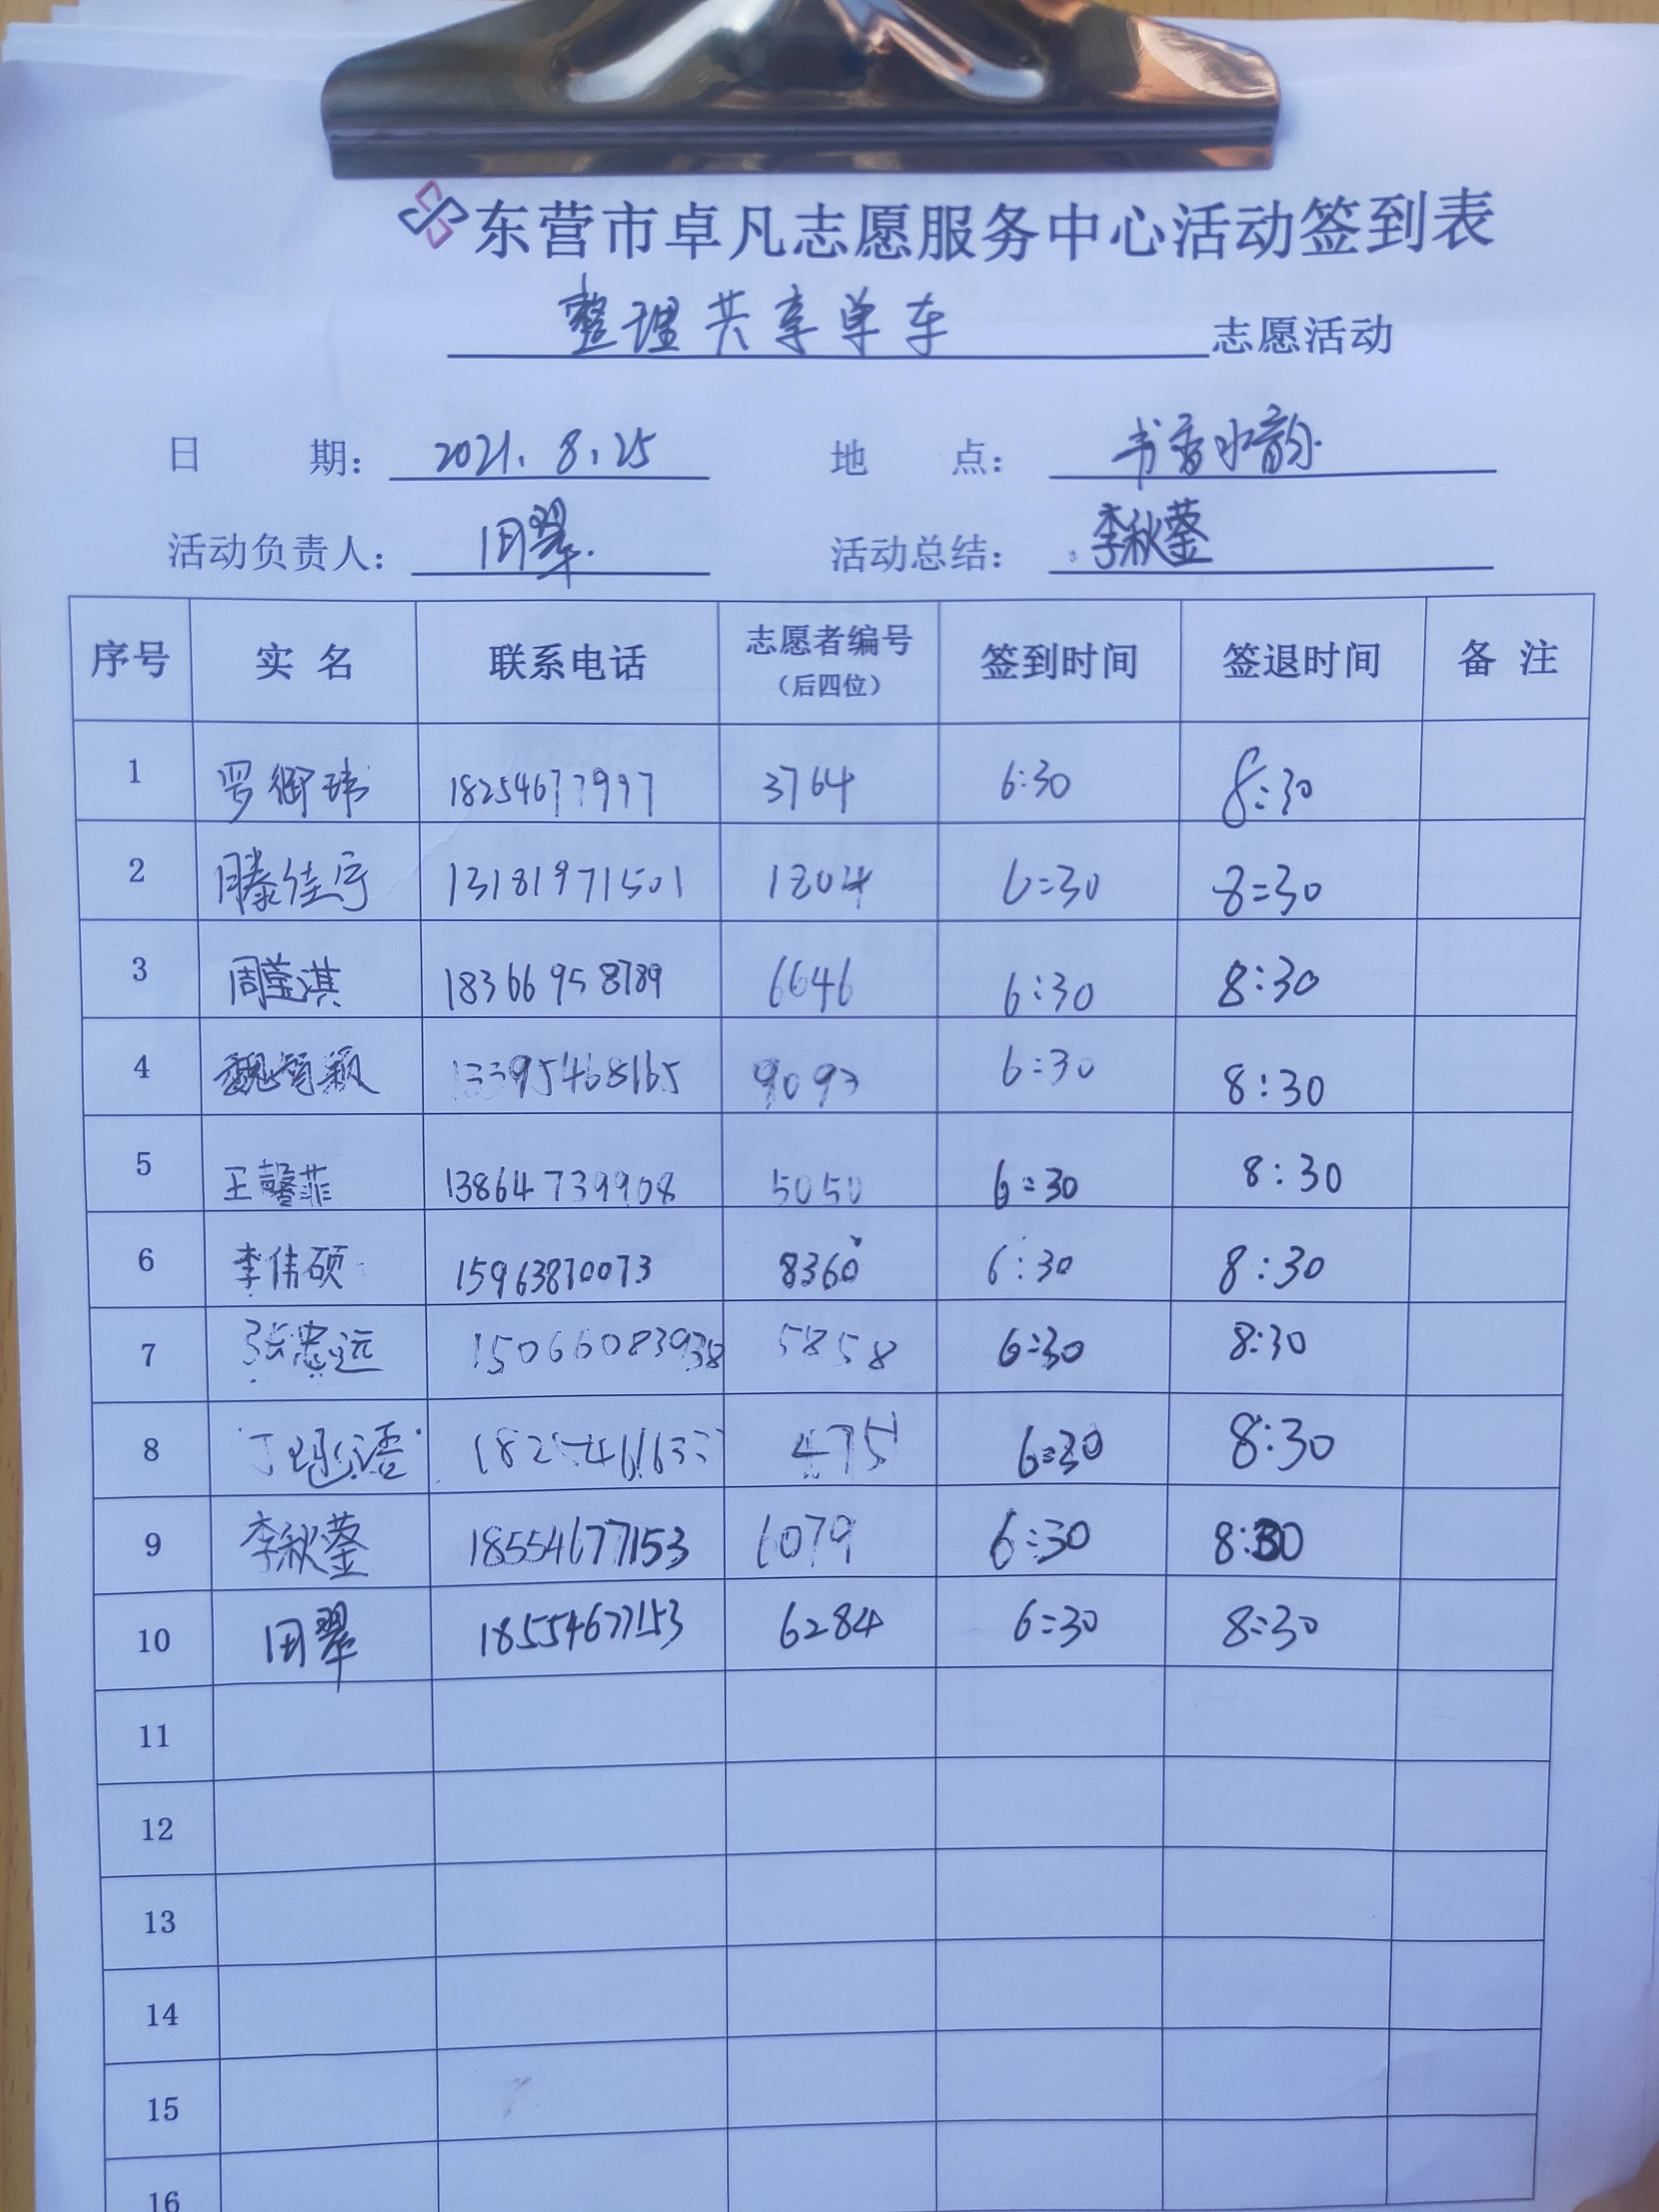 东营市卓凡志愿服务中心活动签到表
整理共享单车 志愿活动
日 期: 2021.8.25 地 点: 书香水韵
活动负责人: 田翠 活动总结: 李秋蓥
序号 实 名 联系电话 志愿者编号(后四位) 签到时间 签退时间 备 注
1 罗御玮 18254677997 3764 6:30 8:30
2 滕佳宇 13181971501 1804 6:30 8:30
3 周莹淇 18366958789 6646 6:30 8:30
4 魏 颖 13395468165 9093 6:30 8:30
5 王馨菲 13864739908 5050 6:30 8:30
6 李伟硕 15963870073 8360 6:30 8:30
7 张忠远 15066083938 5858 6:30 8:30
8 丁 语 6:30 8:30
9 李秋蓥 18554677153 6079 6:30 8:30
10 田翠 18554677153 6284 6:30 8:30
11
12
13
14
15
16